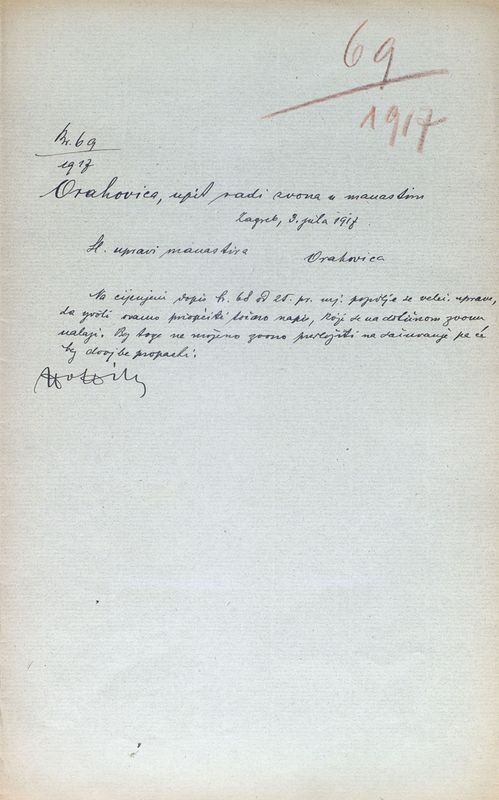 69
1917
Br. 69
1917
Orahovica, upit radi zvona u manastiru
Zagreb, 3. jula 1917.
Sl. upravi manastira
Orahovica
Na cijenjeni dopis br. 68 od 25. pr. mj. požuruje se velesl. uprava,
da izvoli ovamo priopćiti točan napis, koji se na dotičnom zvonu
nalazi. Bez toga ne možemo zvono predložiti na sačuvanje pa će
bez dvojbe propasti.